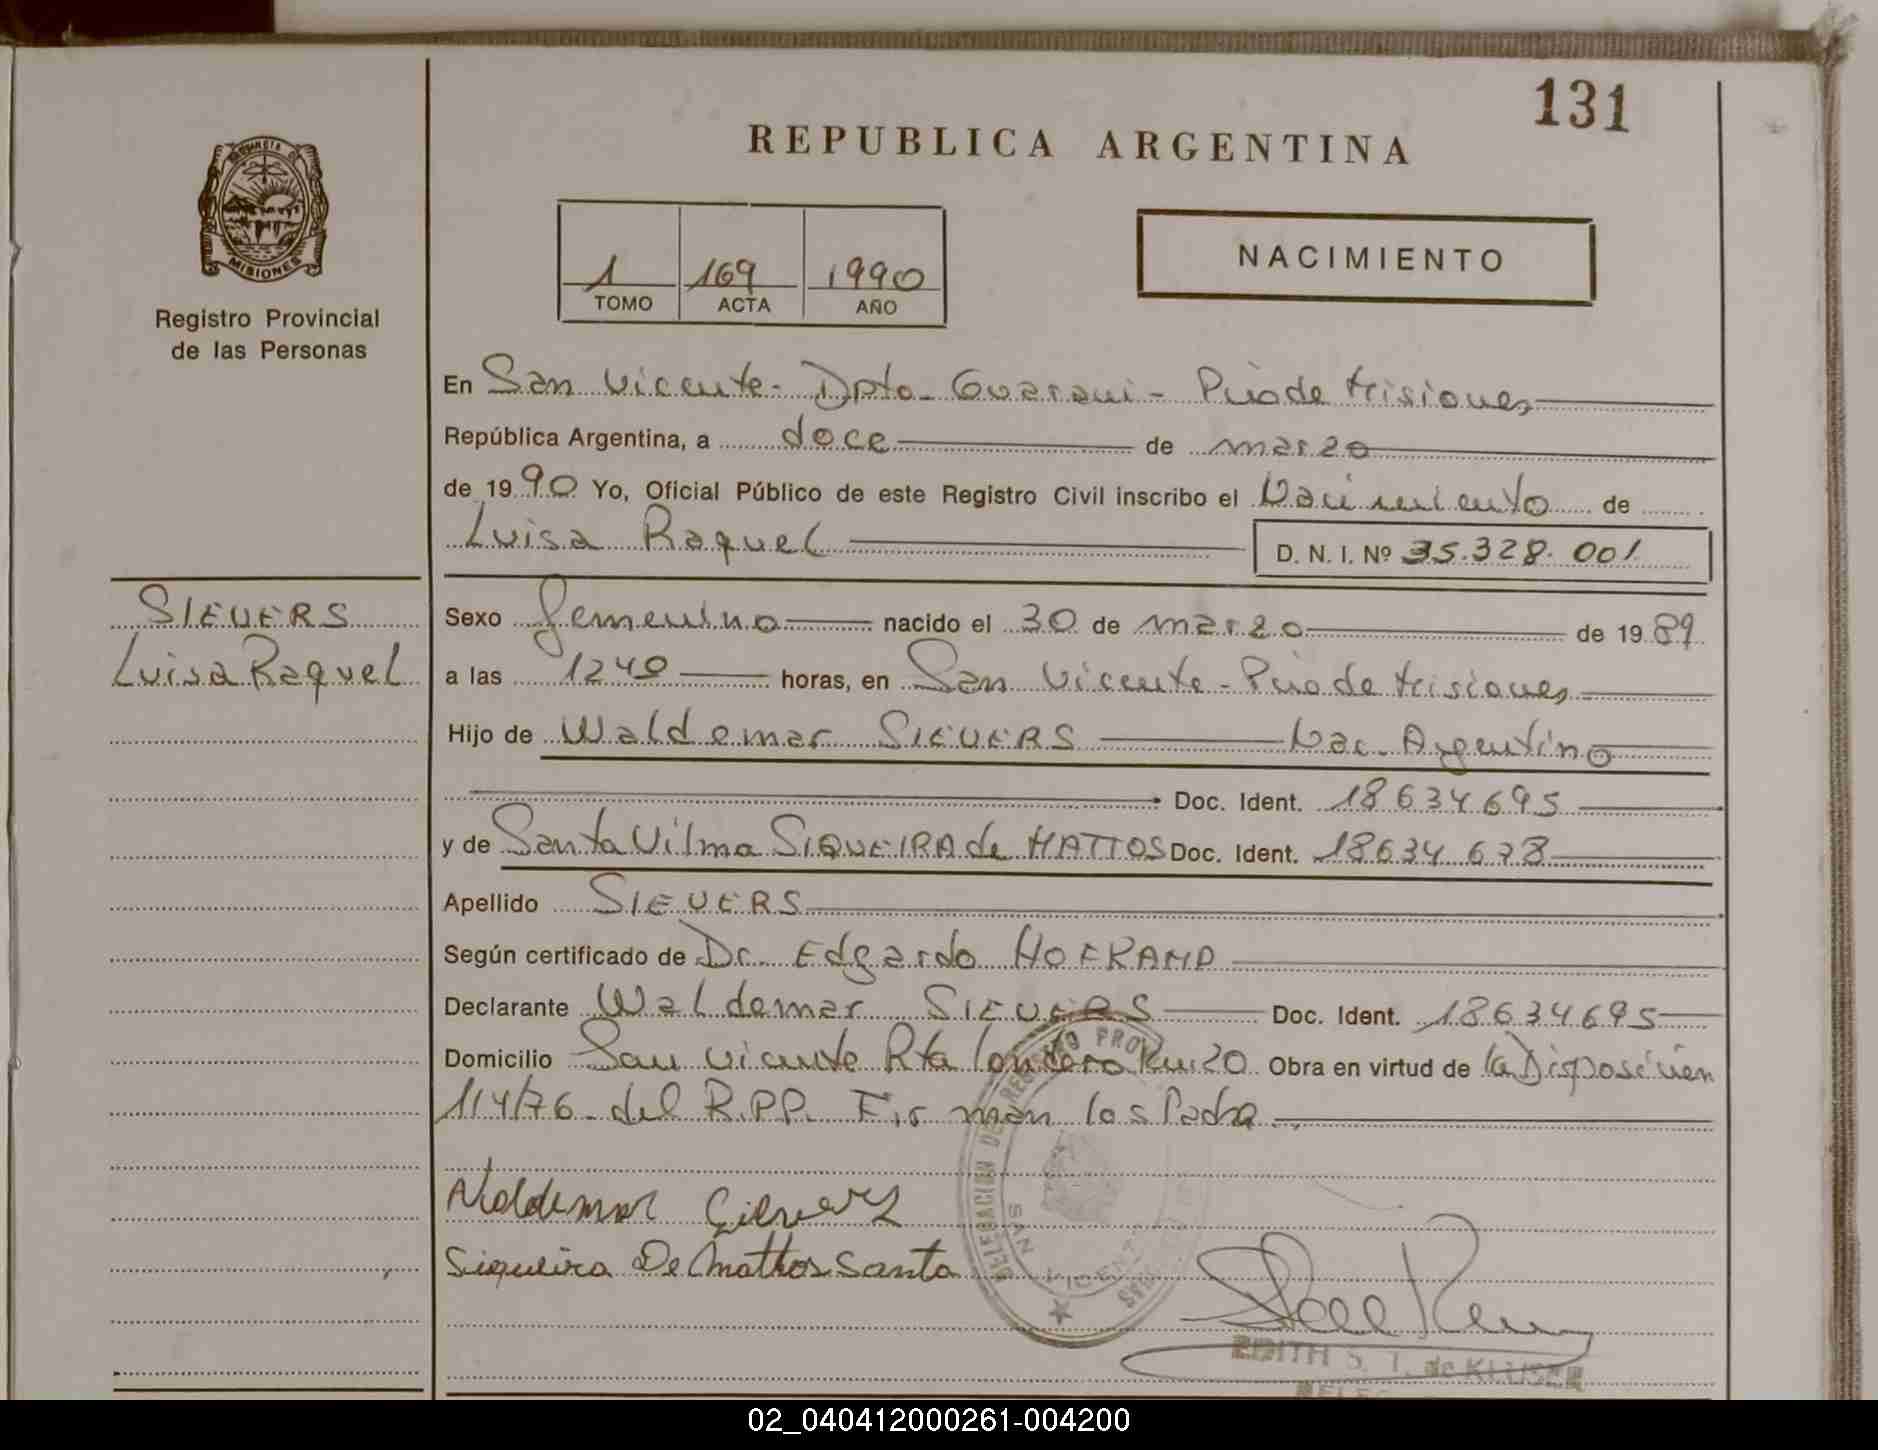 131
REPUBLICA ARGENTINA
PROVINCIA DE MISIONES
Registro Provincial
de las Personas
1 169 1990
TOMO ACTA AÑO
NACIMIENTO
En San Vicente - Dpto - Guarani - Pcia de Misiones
República Argentina, a doce de marzo
de 1990 Yo, Oficial Público de este Registro Civil inscribo el Nacimiento de
Luisa Raquel D. N. I. Nº 35.328.001
SIEVERS
Luisa Raquel
Sexo femenino nacido el 30 de marzo de 1989
a las 1240 horas, en San Vicente - Pcia de Misiones
Hijo de Waldemar SIEVERS Nac. Argentino
Doc. Ident. 18634695
y de Santa Vilma SIQUEIRA de MATTOS Doc. Ident. 18634678
Apellido SIEVERS
Según certificado de Dr. Edgardo
Declarante Waldemar SIEVERS Doc. Ident. 18634695
Domicilio San Vicente Rta Londero Km 20 Obra en virtud de la Disposición
114/76 - del R.P.P. Firman los Padre
DELEGACION DEL REGISTRO PROV
SAN VICENTE
Waldemar Sievers
Siqueira De Mattos Santa
EDITH S. T. de KLUSER
02_040412000261-004200